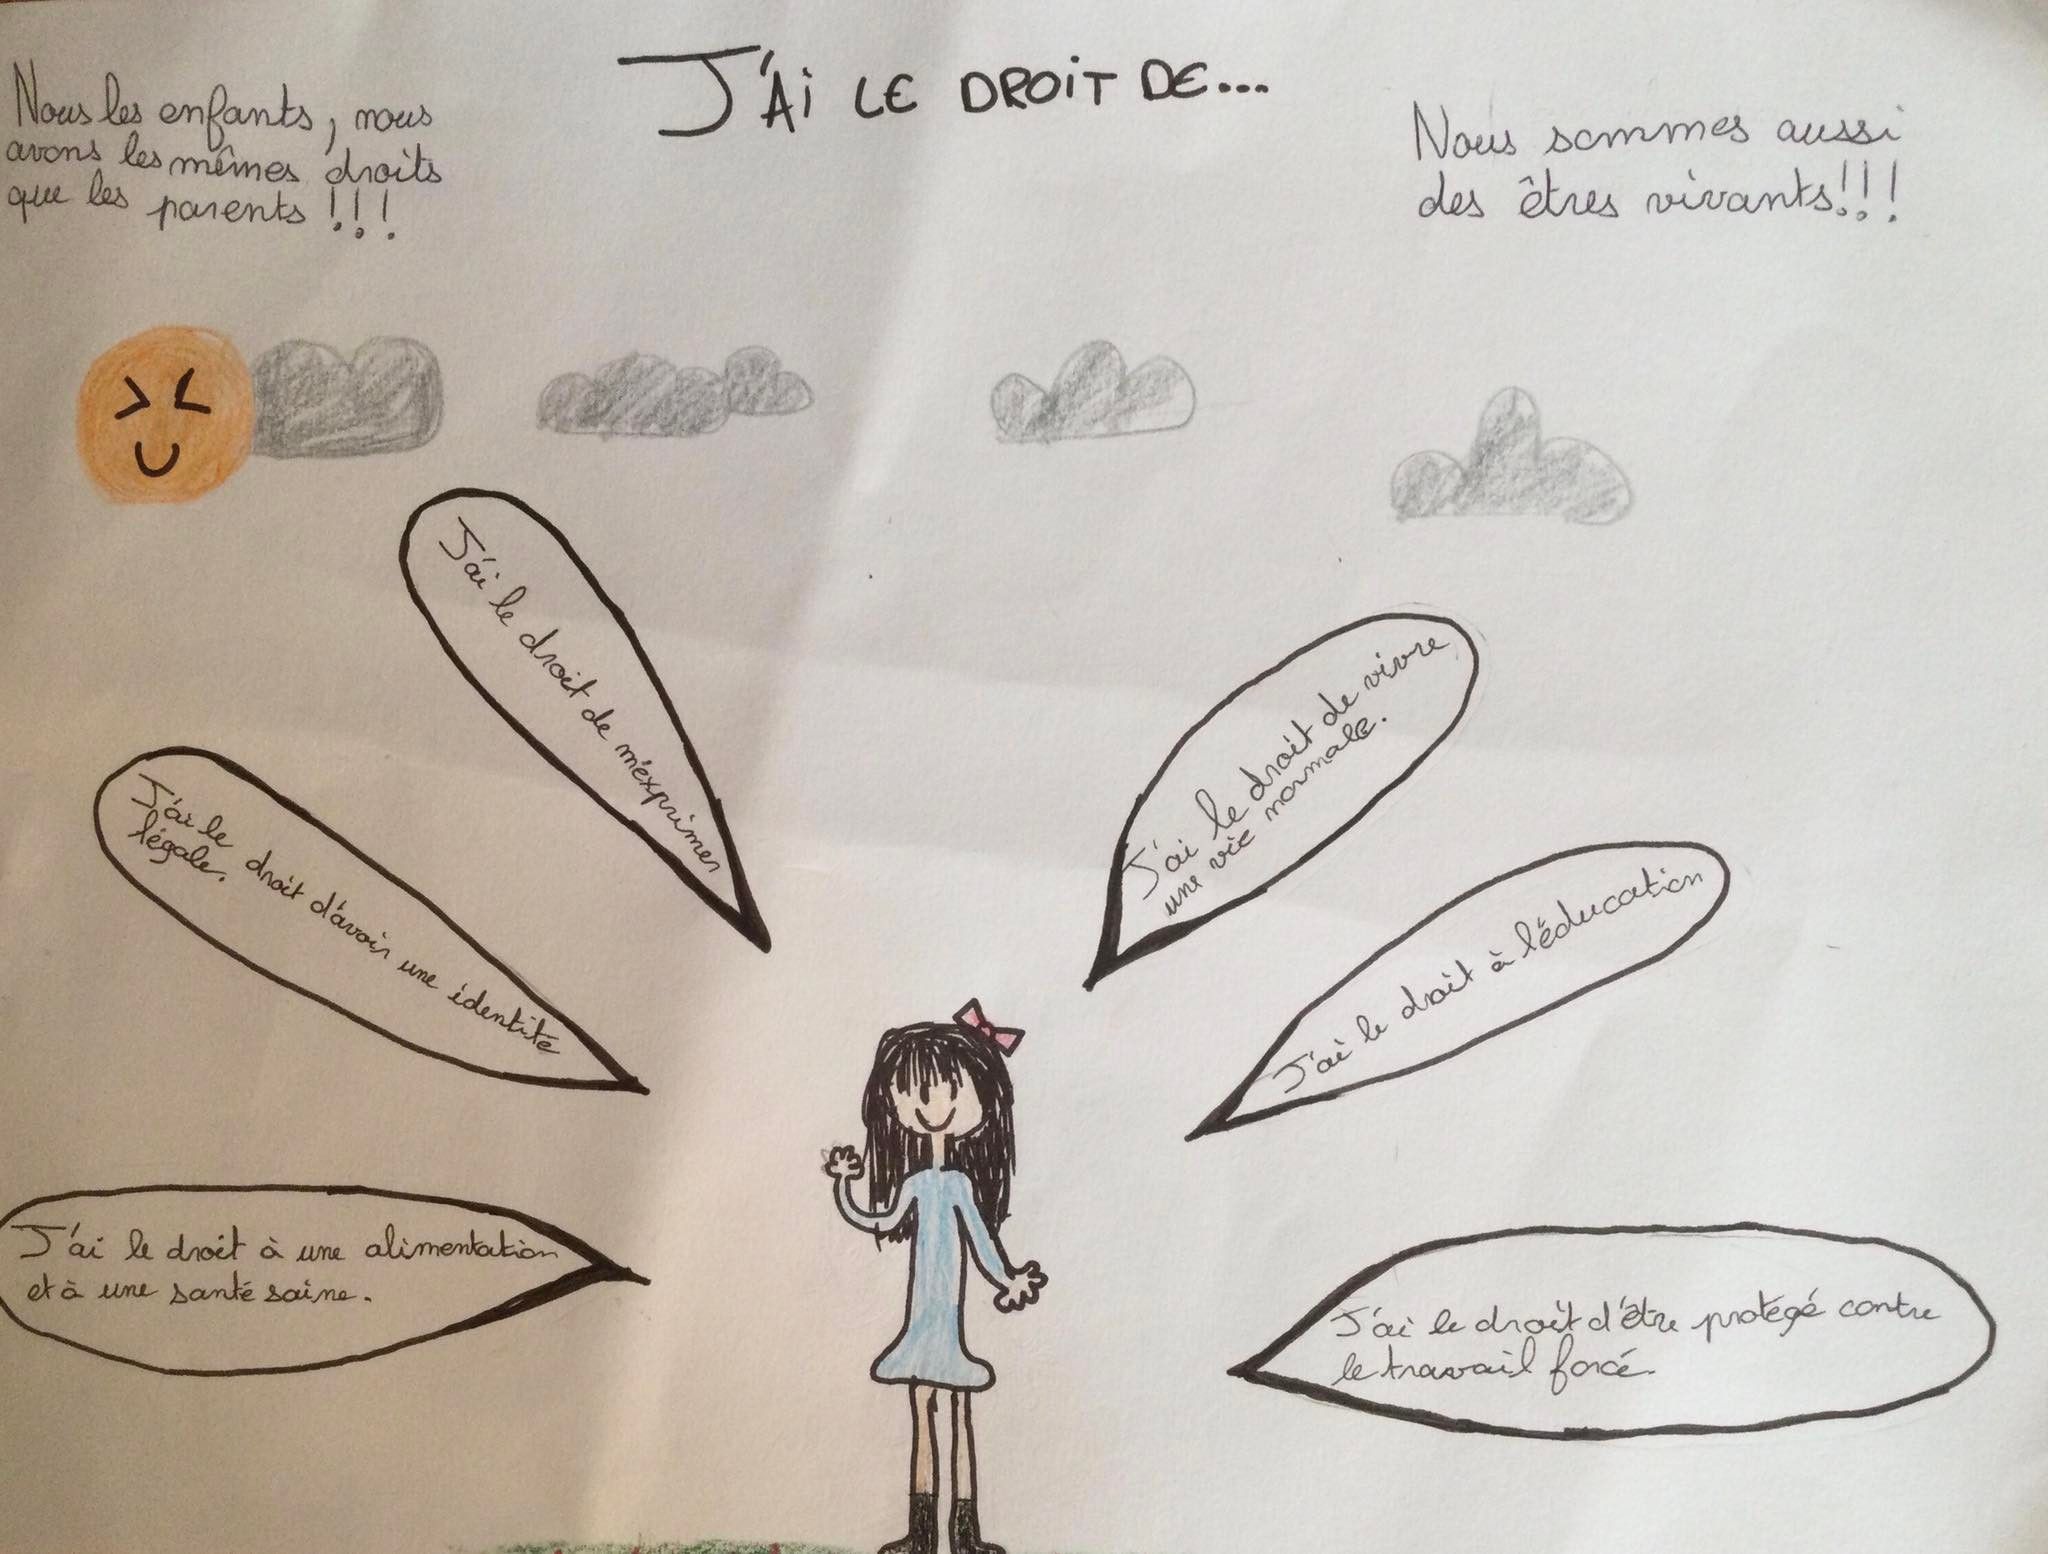 J'Ai LE DROiT DE...
Nous les enfants, nous
avons les mêmes droits
que les parents !!!
Nous sommes aussi
des êtres vivants!!!
J'ai le droit de m'éxprimer
J'ai le droit de vivre
une vie normale.
J'ai le droit d'avoir une identité
légale.
J'ai le droit à l'éducation
J'ai le droit à une alimentation
et à une santé saine.
J'ai le droit d'être protégé contre
le travail forcé.